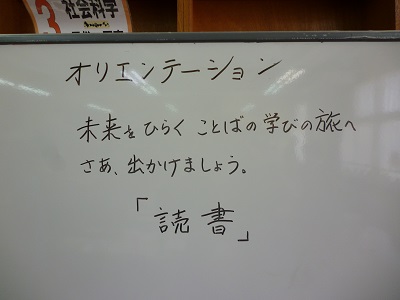 3 社会科学
オリエンテーション
未来をひらく ことばの学びの旅へ
さあ、出かけましょう。
「読書」